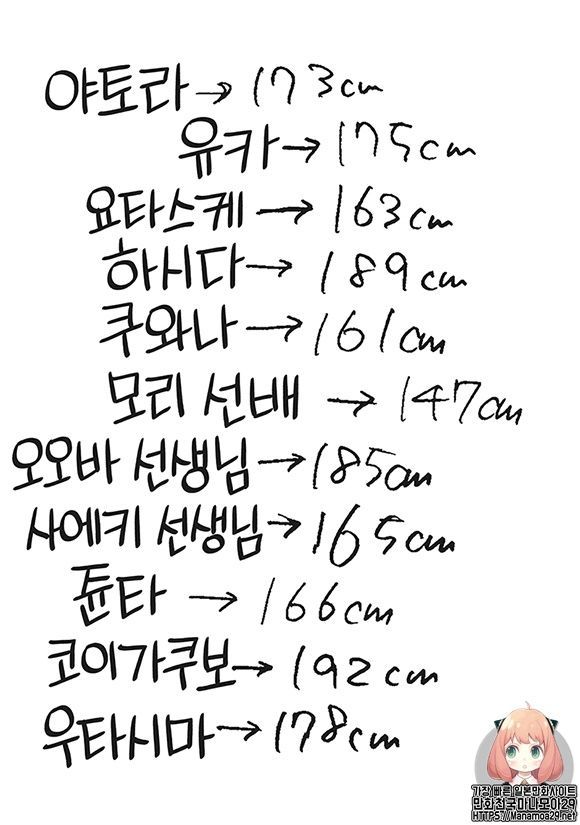 야토라→173cm
유카→175cm
요타스케→163cm
하시다→189cm
쿠와나→161cm
모리 선배→147cm
오오바 선생님→185cm
사에키 선생님→165cm
쥰타→166cm
코이가쿠보→192cm
우타시마→178cm
가장 빠른 일본만화사이트
만화천국마나모아29
HTTPS://Manamoa29.net